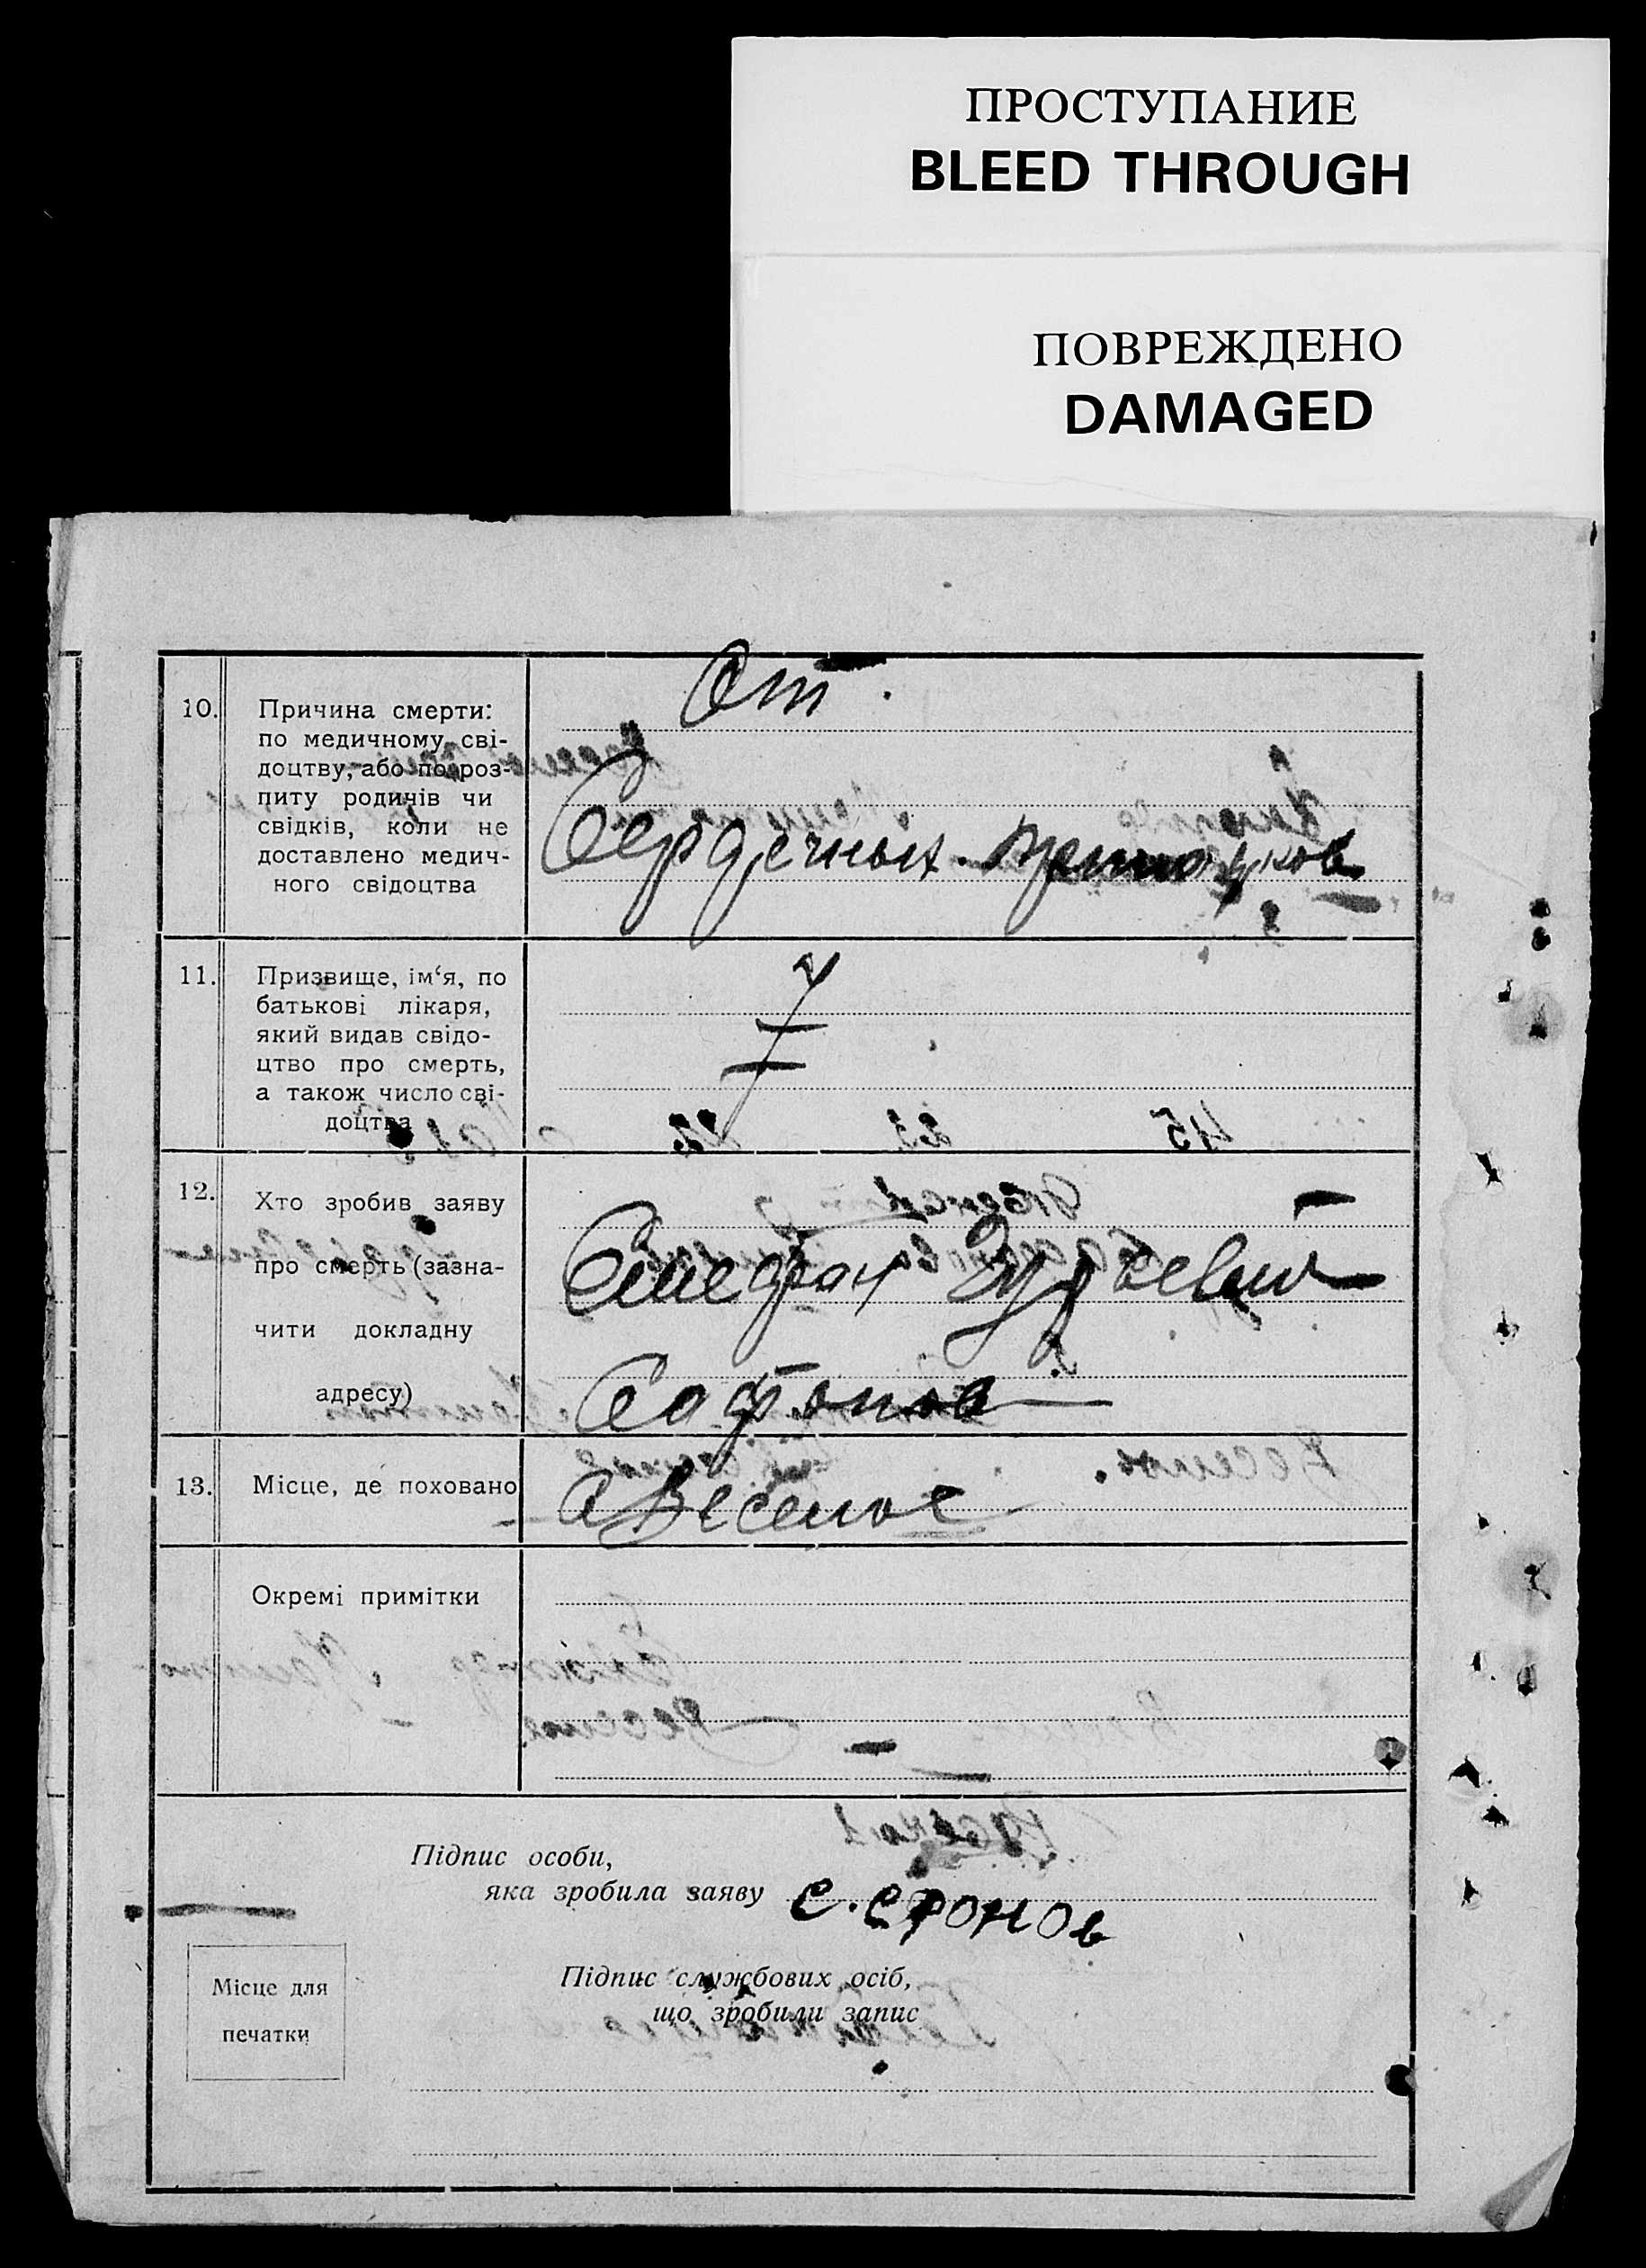 ПРОСТУПАНИЕ
BLEED THROUGH
ПОВРЕЖДЕНО
DAMAGED
10. Причина смерти:
по медичному сві-
доцтву, або по роз-
питу родичів чи
свідків, коли не
доставлено медич-
ного свідоцтва
От
Сердечных
11. Призвище, ім‘я, по
батькові лікаря,
який видав свідо-
цтво про смерть,
а також число сві-
доцтва
12. Хто зробив заяву
про смерть (зазна-
чити докладну
адресу)
Сафонов
13. Місце, де поховано
с Веселое
Окремі примітки
Підпис особи,
яка зробила заяву С. СФОНОв
Місце для
печатки
Підпис службових осіб,
що зробили запис